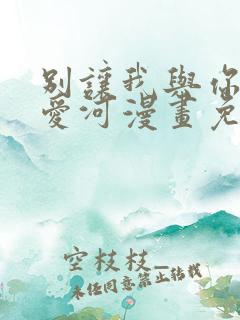 別讓我與你
愛河漫畫免
空枝枝_
未經同意禁止轉載